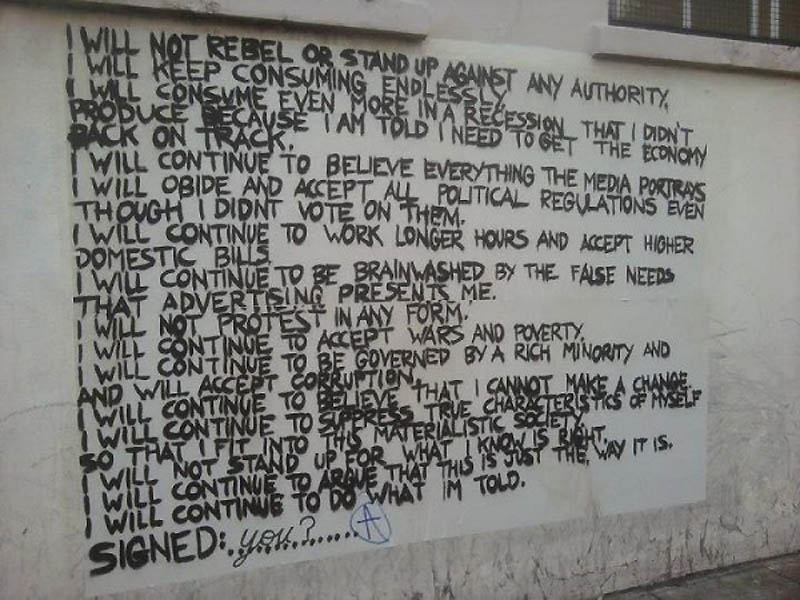 I WILL NOT REBEL OR STAND UP AGAINST ANY AUTHORITY.
I WILL KEEP CONSUMING ENDLESSLY.
I WILL CONSUME EVEN MORE IN A RECESSION THAT I DIDN'T
PRODUCE BECAUSE I AM TOLD I NEED TO GET THE ECONOMY
BACK ON TRACK.
I WILL CONTINUE TO BELIEVE EVERYTHING THE MEDIA PORTRAYS
I WILL OBIDE AND ACCEPT ALL POLITICAL REGULATIONS EVEN
THOUGH I DIDNT VOTE ON THEM.
I WILL CONTINUE TO WORK LONGER HOURS AND ACCEPT HIGHER
DOMESTIC BILLS
I WILL CONTINUE TO BE BRAINWASHED BY THE FALSE NEEDS
THAT ADVERTISING PRESENTS ME.
I WILL NOT PROTEST IN ANY FORM.
I WILL CONTINUE TO ACCEPT WARS AND POVERTY.
I WILL CONTINUE TO BE GOVERNED BY A RICH MINORITY AND
AND WILL ACCEPT CORRUPTION.
I WILL CONTINUE TO BELIEVE THAT I CANNOT MAKE A CHANGE.
I WILL CONTINUE TO SUPPRESS TRUE CHARACTERISTICS OF MYSELF
SO THAT I FIT INTO THIS MATERIALISTIC SOCIETY
I WILL NOT STAND UP FOR WHAT I KNOW IS RIGHT.
I WILL CONTINUE TO ARGUE THAT THIS IS JUST THE WAY IT IS.
I WILL CONTINUE TO DO WHAT IM TOLD.
SIGNED: you?